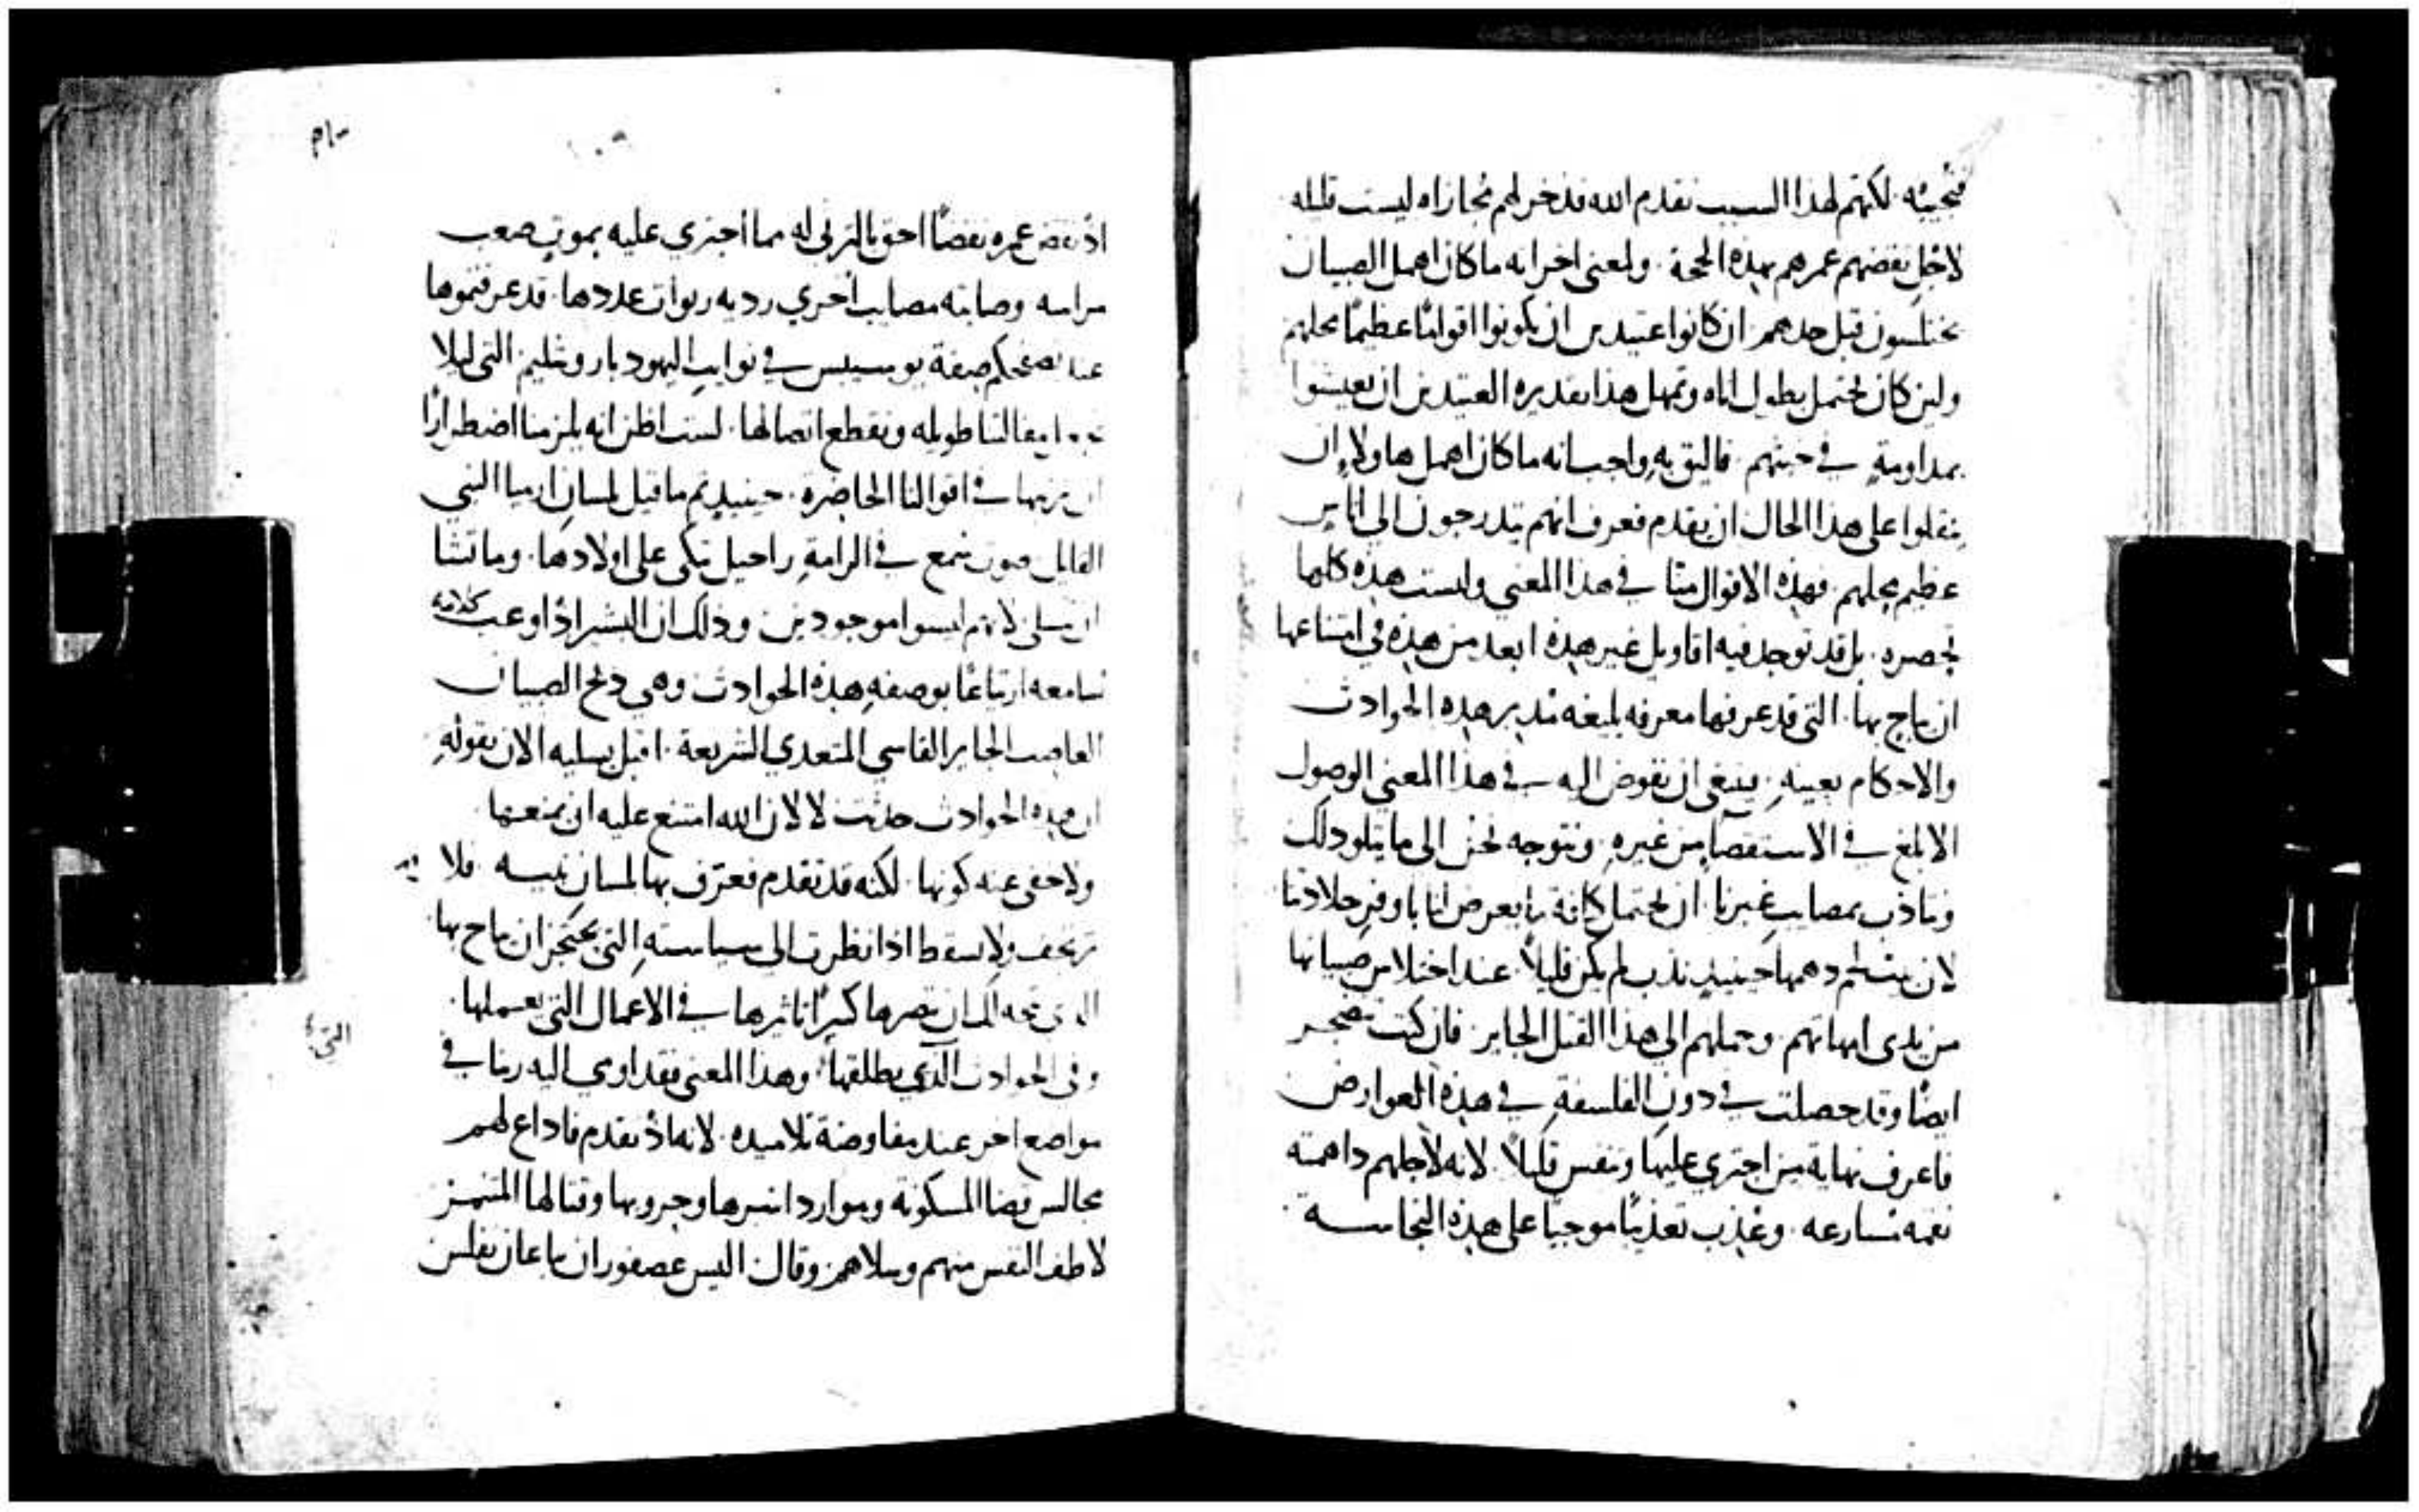 فتجيبه. لكنهم لهذا السبب تقدم الله فذخر لهم مجازاه ليست قليله
لاجل نقضهم عمرهم بهذه الحجة. ولمعنى اخر انه ما كان اهمل الصبيان
يختلسون قبل حدهم. ان كانوا عتيدين ان يكونوا اقوامًا عظيمًا محلهم
ولين كان يحتمل بطول اناه وتمهل هذا تقديره العتيدين ان يعيشوا
بمداومةٍ في خبثهم. فاليق به واجب انه ما كان اهمل هاولاء ان
ينقلوا على هذا الحال ان يقدم فعرف انهم يتدرجون الى اناس
عظيم محلهم. فهذه الاقوال منا في هذا المعنى وليست هذه كلها
تحصره. بل قد توجد فيه اقاويل غير هذه ابعد من هذه في امتناعها
ان يباح بها. التي قد عرفها معرفه بليغه مدبر هذه الحوادث
والاحكام بعينه. ينبغي ان نفوض اليه في هذا المعنى الوصول
الابلغ في الاستقصا من غيره. ونتوجه نحن الى ما يتلو ذلك
ونتاذب بمصايب غيرنا. ان نحتمل كافة ما يعرض لنا باوفر جلادتنا
لان بيت لحم دهمها حينيذٍ ندب لم يكن قليلاً. عند اختلاس صبيانها
من ثدى امهاتهم. وحملهم الى هذا القتل الجاير. فان كنت تضجر
ايضًا وقد حصلت في دون الفلسفةِ في هذه العوارض
فاعرف نهاية من اجترى عليها وتنفس قليلاً. لانه لاجلهم داهمته
نقمه تسارعه. وعُذب تعذيبًا موجبًا على هذه النجاسه
اذ نقض عمره نقضًا احق بالتربي له مما اجترى عليه بموتٍ صعب
مرامه وصابته مصايب اخرى رديه ربوات عددها. قد عرفتموها
عند تصفحكم صفة يوسيبس في نوايب اليهود باروشليم التي ليلا
نجعل مقالتنا طويله ونقطع اتصالها. لست اظن انه يلزمنا اضطرارًا
ان نرتبها في اقوالنا الحاضره. حينيذٍ تم ما قيل بلسان ارميا النبي
القايل صوت سمع في الرامةِ راحيل تبكى على اولادها. وما تشا
ان تسلى لانهم ليسوا موجودين وذلك ان البشير اذ اوعب كلامه
سامعه ارتياعًا بوصفه هذه الحوادث وهي ذبح الصبيان
الغاصب الجاير القاسي المتعدي الشريعة. اقبل يسليه الان بقوله
ان هذه الحوادث حدثت لا لان الله امتنع عليه ان يمنعها.
ولا خفى عنه كونها. لكنه قد تقدم فعرّف بها بلسان نبيه. فلا
ترتجف ولا تسقط اذا نظرت الى سياسته التي يحتجز ان يباح بها.
وفي الحوادث الذي يطلقها. وهذا المعنى فقد اومى اليه ربنا في
مواضع اخر عند مفاوضة تلاميده. لانه اذ تقدم فاداع لهم
مجالس قضا المسكونة وموارد اسرها وحروبها وقتالها
لاطف النفس منهم وسلاهم وقال اليس عصفوران يباعان بفلس